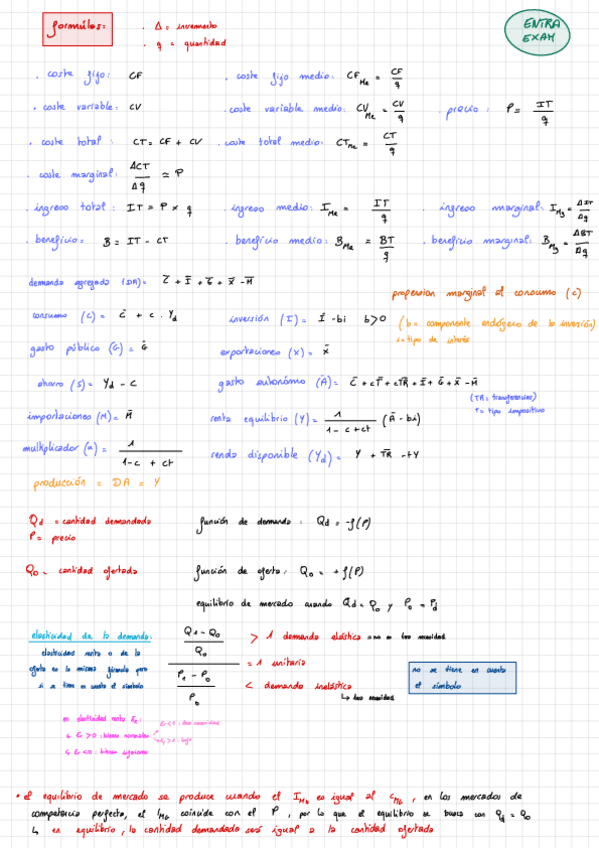 formúlas:
· Δ = incremento
· q = quantidad
ENTRA
EXAM
· coste fijo: CF
· coste fijo medio: CF_Me = CF/q
· coste variable: CV
· coste variable medio: CV_Me = CV/q
· precio: P = IT/q
· coste total: CT = CF + CV
· coste total medio: CT_Me = CT/q
· coste marginal: ΔCT/Δq ≃ P
· ingreso total: IT = P x q
· ingreso medio: I_Me = IT/q
· ingreso marginal: I_Mg = ΔIT/Δq
· beneficio: B = IT - CT
· beneficio medio: B_Me = BT/q
· beneficio marginal: B_Mg = ΔBT/Δq
demanda agregada (DA) = C̄ + Ī + Ḡ + X̄ - M̄
propension marginal al consumo (c)
consumo (C) = C̄ + c · Yd
inversión (I) = Ī - bi b>0
(b = componente endógeno de la inversión)
i = tipo de interés
gasto público (G) = Ḡ
exportaciones (X) = X̄
ahorro (S) = Yd - C
gasto autonómo (Ā) = C̄ + cT̄ + cTR̄ + Ī + Ḡ + X̄ - M̄
(TR = transferencias)
t = tipo impositivo
importaciones (M) = M̄
renta equilibrio (Y) = 1/(1 - c + ct) (Ā - bi)
multiplicador (α) = 1/(1 - c + ct)
renda disponible (Yd) = Y + TR̄ - tY
producción = DA = Y
Qd = cantidad demandada
P = precio
función de demanda: Qd = -f(P)
Qo = cantidad ofertada
función de oferta: Qo = +f(P)
equilibrio de mercado cuando Qd = Qo y Po = Pd
elasticidad de la demanda:
elasticidad renta o de la
oferta es la misma fórmula pero
si se tiene en cuenta el símbolo
Q1 - Q0
Q0
P1 - P0
P0
> 1 demanda elástica
= 1 unitaria
< demanda inelástica
no se tiene en cuenta
el símbolo
en elasticidad renta Er:
↳ Er > 0: bienes normales
↳ Er < 0: bienes inferiores
• el equilibrio de mercado se produce cuando el I_Mg es igual al C_Mg, en los mercados de
competencia perfecta, el I_Mg coincide con el P, por lo que el equilibrio se busca con Qd = Qo
↳ en equilibrio, la cantidad demandada será igual a la cantidad ofertada